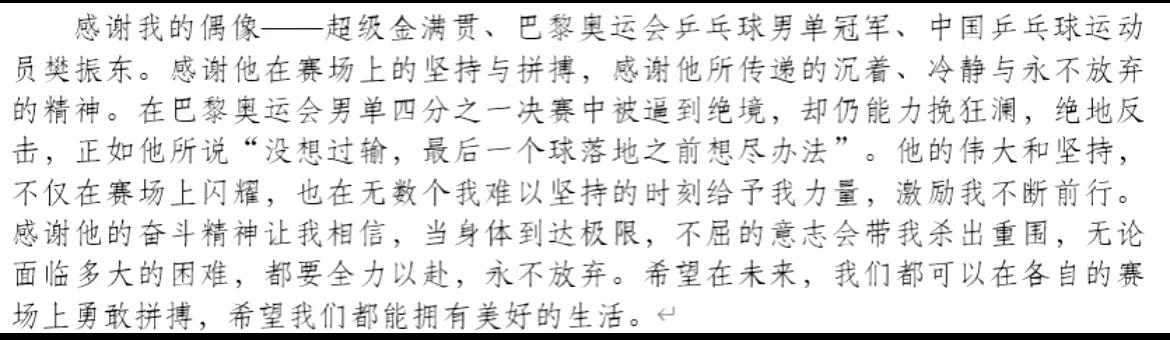 感谢我的偶像——超级金满贯、巴黎奥运会乒乓球男单冠军、中国乒乓球运动
员樊振东。感谢他在赛场上的坚持与拼搏，感谢他所传递的沉着、冷静与永不放弃
的精神。在巴黎奥运会男单四分之一决赛中被逼到绝境，却仍能力挽狂澜，绝地反
击，正如他所说“没想过输，最后一个球落地之前想尽办法”。他的伟大和坚持，
不仅在赛场上闪耀，也在无数个我难以坚持的时刻给予我力量，激励我不断前行。
感谢他的奋斗精神让我相信，当身体到达极限，不屈的意志会带我杀出重围，无论
面临多大的困难，都要全力以赴，永不放弃。希望在未来，我们都可以在各自的赛
场上勇敢拼搏，希望我们都能拥有美好的生活。↵